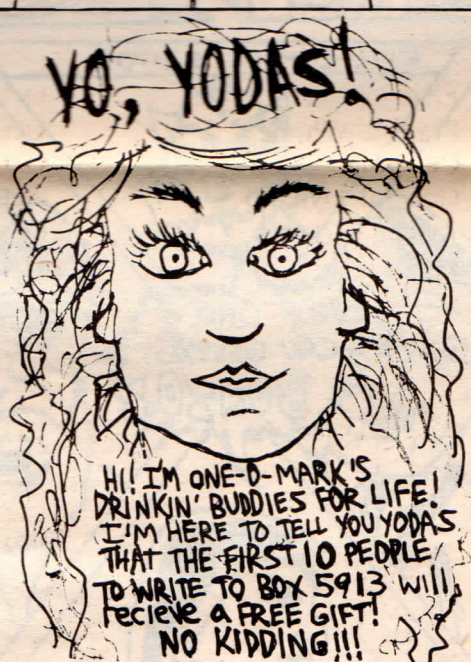 YO, YODAS!
HI! I'M ONE-O-MARK'S
DRINKIN' BUDDIES FOR LIFE!
I'M HERE TO TELL YOU YODAS
THAT THE FIRST 10 PEOPLE
TO WRITE TO BOX 5913 WILL
recieve a FREE GIFT!
NO KIDDING!!!